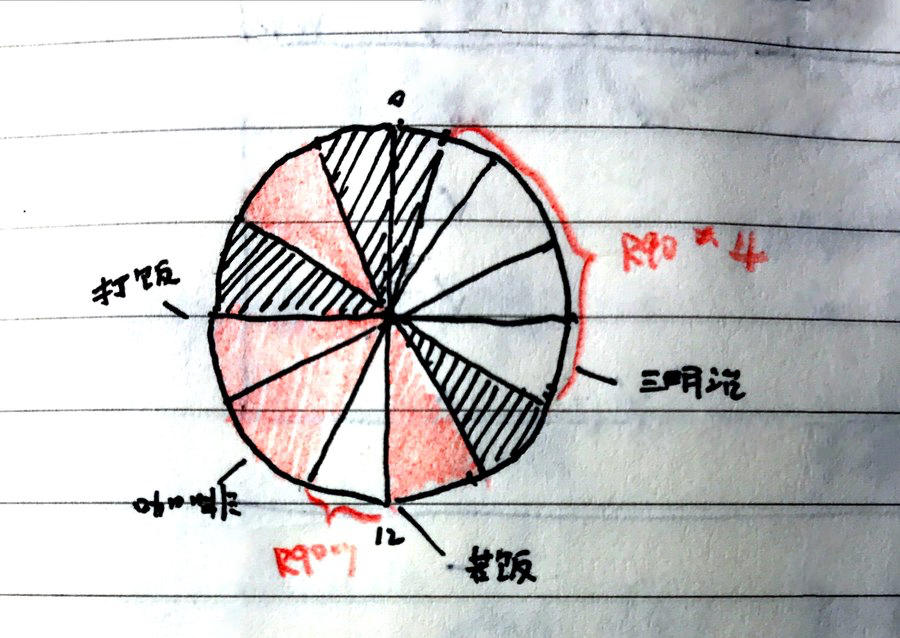 0
R90 * 4
打饭
三明治
咖啡
12
R90*1
煮饭